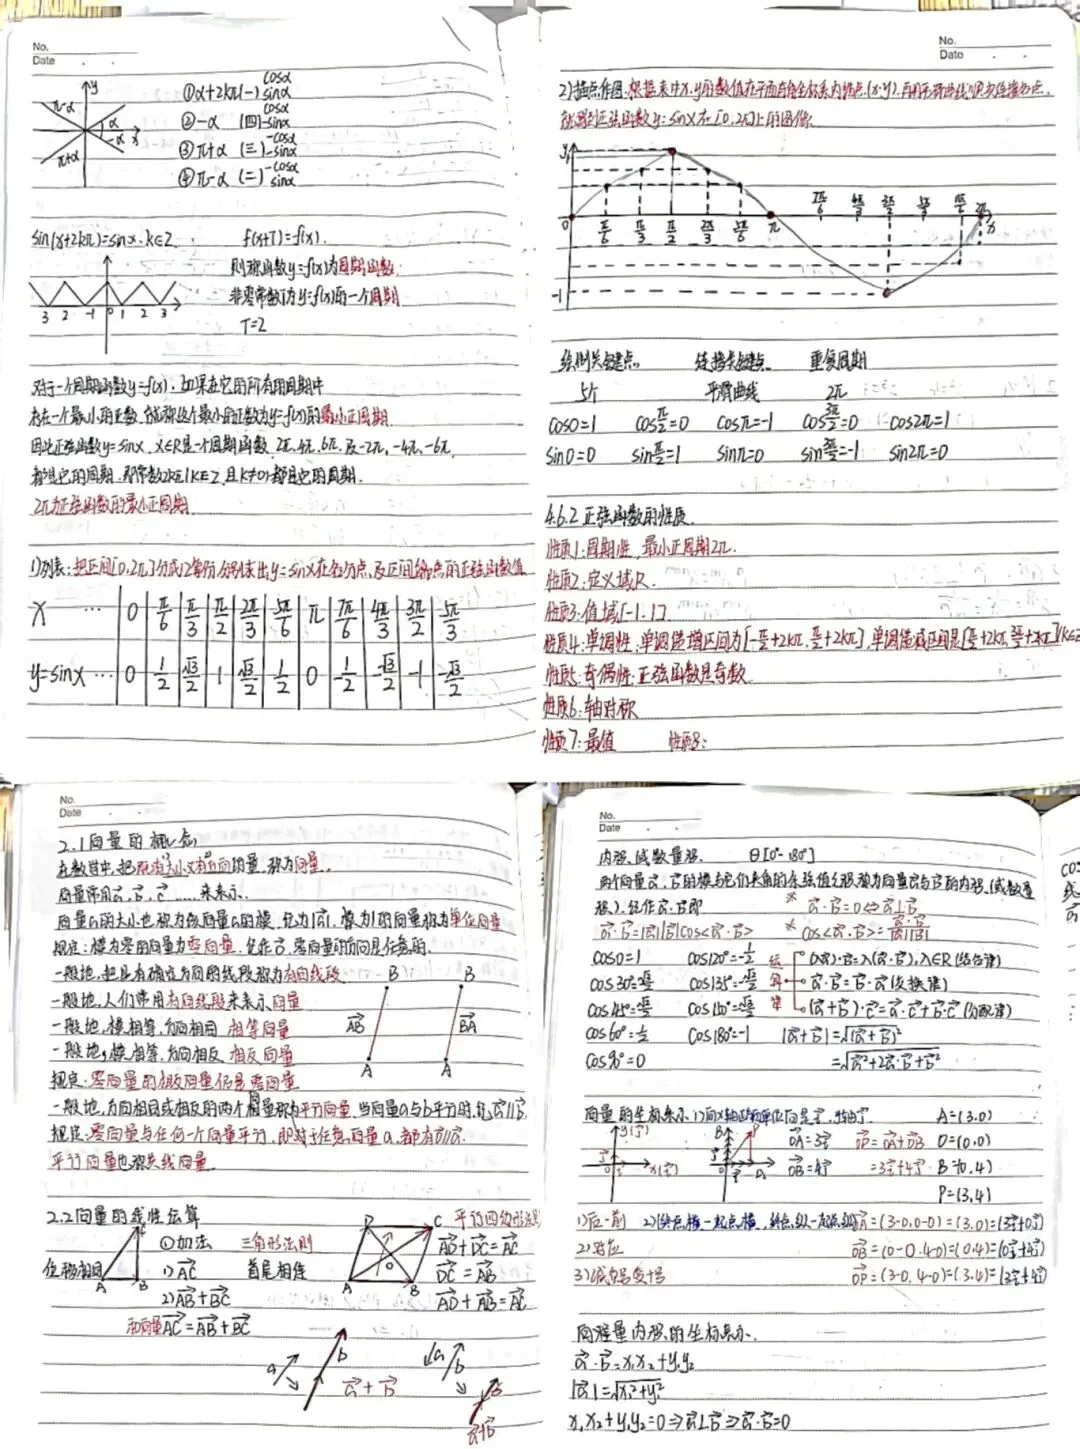 No.
Date
y
π-α
α
-α
x
π+α
①α+2kπ(一) cosα sinα
②-α (四) cosα -sinα
③π+α (三) -cosα -sinα
④π-α (二) -cosα sinα
sin(x+2kπ)=sinx.k∈Z
f(x+T)=f(x).
则称函数y=f(x)为周期函数
非零常数T为y=f(x)的一个周期
T=2
3 2 -1 0 1 2 3
对于一个周期函数y=f(x),如果在它的所有的周期中
存在一个最小的正数,就称这个最小的正数为y=f(x)的最小正周期
因此正弦函数y=sinx,x∈R是一个周期函数,2π,4π,6π,及-2π,-4π,-6π,
都是它的周期,即常数2kπ(k∈Z且k≠0)都是它的周期.
2π为正弦函数的最小正周期
1)列表:把区间[0,2π]分成12等份,分别求出y=sinx在各分点及区间端点的正弦函数值
x ... 0 π/6 π/3 π/2 2π/3 5π/6 π 7π/6 4π/3 3π/2 5π/3
y=sinx ... 0 1/2 √3/2 1 √3/2 1/2 0 -1/2 -√3/2 -1 -√3/2
No.
Date
2)描点作图:根据表中x,y的数值在平面直角坐标系内描点(x,y),再用平滑曲线顺次连接各点,
就得到正弦函数y=sinx在[0,2π]上的图像
y
0 π/6 π/3 π/2 2π/3 5π/6 π 7π/6 4π/3 3π/2 5π/3 11π/6 2π x
-1
绘制关键点 连接关键点 重复周期
5个 平滑曲线 2π
cos0=1 cosπ/2=0 cosπ=-1 cos3π/2=0 cos2π=1
sin0=0 sinπ/2=1 sinπ=0 sin3π/2=-1 sin2π=0
4.6.2正弦函数的性质
性质1:周期性,最小正周期2π.
性质2:定义域R
性质3:值域[-1.1]
性质4:单调性:单调递增区间为[-π/2+2kπ,π/2+2kπ],单调递减区间是[π/2+2kπ,3π/2+2kπ](k∈Z
性质5:奇偶性:正弦函数是奇数
性质6:轴对称
性质7:最值 性质8:
No.
Date
2.1向量的概念
在数学中,把既有大小又有方向的量,称为向量.
向量常用a⃗,b⃗,c⃗……来表示.
向量a的大小也称为该向量a的模,记为|a⃗|,模为1的向量称为单位向量
规定:模为零的向量为零向量,记作0⃗,零向量的方向是任意的.
一般地,把具有确定方向的线段称为有向线段
一般地,人们常用有向线段来表示向量
一般地,模相等,方向相同 相等向量
一般地,模相等,方向相反 相反向量
规定:零向量的相反向量仍是零向量
B B
AB⃗ BA⃗
A A
一般地,方向相同或相反的两个向量称为平行向量,当向量a与b平行时,记a⃗∥b⃗
规定:零向量与任何一个向量平行,即对于任意向量a,都有0⃗∥a⃗.
平行向量也称共线向量
2.2向量的线性运算
①加法 三角形法则
位移相同 1)AC⃗ 首尾相连
2)AB⃗+BC⃗
和向量AC⃗=AB⃗+BC⃗
A B C
D C
O
A B
平行四边形法则
AD⃗+DC⃗=AC⃗
DC⃗=AB⃗
AD⃗+AB⃗=AC⃗
a b a⃗+b⃗
a b
a⃗+b⃗
No.
Date
内积(或数量积. θ[0°-180°]
两个向量a⃗,b⃗的模与它们夹角的余弦值之积称为向量a⃗与b⃗的内积(或数量
积),记作a⃗·b⃗即 * a⃗·b⃗=0⇔a⃗⊥b⃗
a⃗·b⃗=|a⃗||b⃗|cos<a⃗·b⃗> * cos<a⃗·b⃗>=a⃗·b⃗/|a⃗||b⃗|
cos0=1 cos120°=-1/2 运 (λa⃗)·b⃗=λ(a⃗·b⃗),λ∈R(结合律)
cos30°=√3/2 cos135°=-√2/2 算 a⃗·b⃗=b⃗·a⃗(交换律)
cos45°=√2/2 cos150°=-√3/2 律 (a⃗+b⃗)·c⃗=a⃗·c⃗+b⃗·c⃗(分配律)
cos60°=1/2 cos180°=-1 |a⃗+b⃗|=√(a⃗+b⃗)²
cos90°=0 =√a⃗²+2a⃗·b⃗+b⃗²
A=(3.0)
OA⃗=3i⃗ OP⃗=OA⃗+OB⃗ O=(0.0)
OB⃗=4j⃗ =3i⃗+4j⃗ B=(0.4)
P=(3,4)
1)后-前 2)(终点横-起点横,终点纵-起点纵) OA⃗=(3-0,0-0)=(3.0)=(3i⃗+0j⃗)
2)对应 OB⃗=(0-0.4-0)=(0.4)=(0i⃗+4j⃗)
OP⃗=(3-0,4-0)=(3.4)=(3i⃗+4j⃗)
向量内积的坐标表示.
a⃗·b⃗=x₁x₂+y₁y₂
|a⃗|=√x²+y²
x₁x₂+y₁y₂=0⇒a⃗⊥b⃗⇒a⃗·b⃗=0